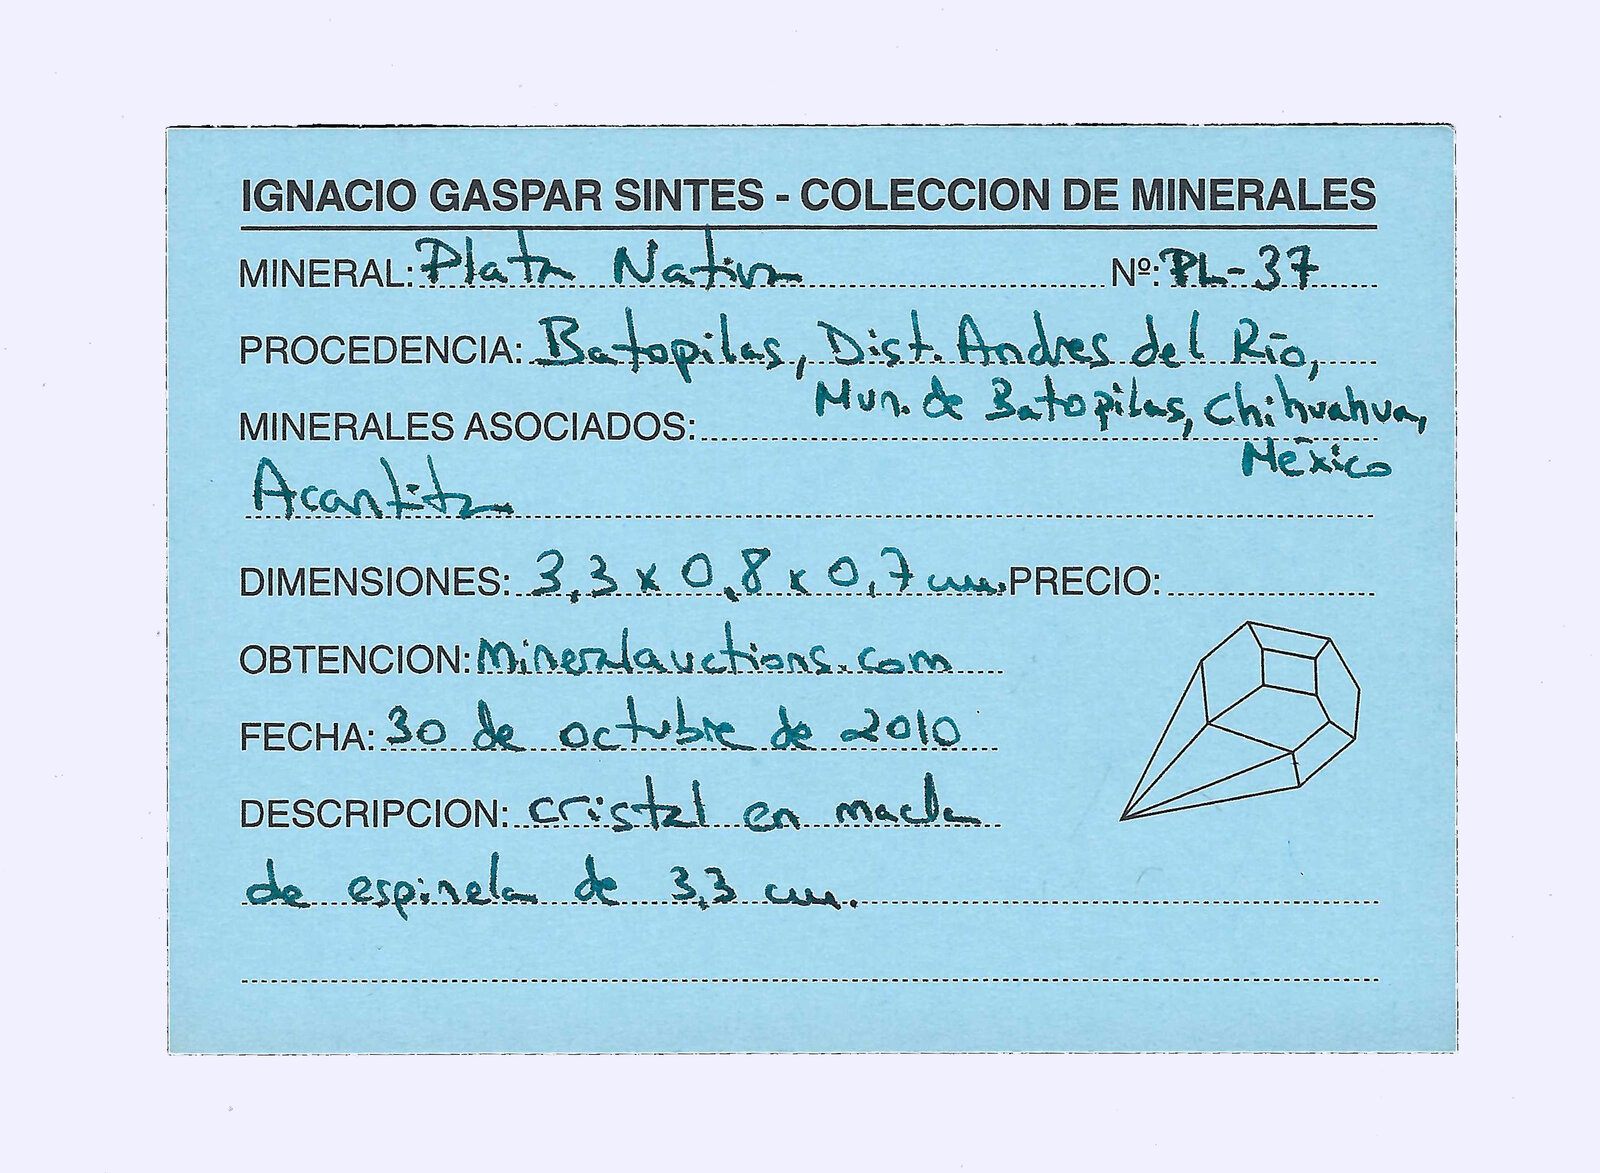 IGNACIO GASPAR SINTES - COLECCION DE MINERALES
MINERAL: Plata Nativa Nº: PL-37
PROCEDENCIA: Batopilas, Dist. Andres del Río,
Mun. de Batopilas, Chihuahua,
MINERALES ASOCIADOS:
México
Acantita
DIMENSIONES: 3,3 x 0,8 x 0,7 cm. PRECIO:
OBTENCION: Mineralauctions.com
FECHA: 30 de octubre de 2010
DESCRIPCION: cristal en macla
de espinela de 3,3 cm.